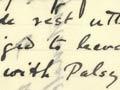 de rest utt
iged to leave
with Palsy